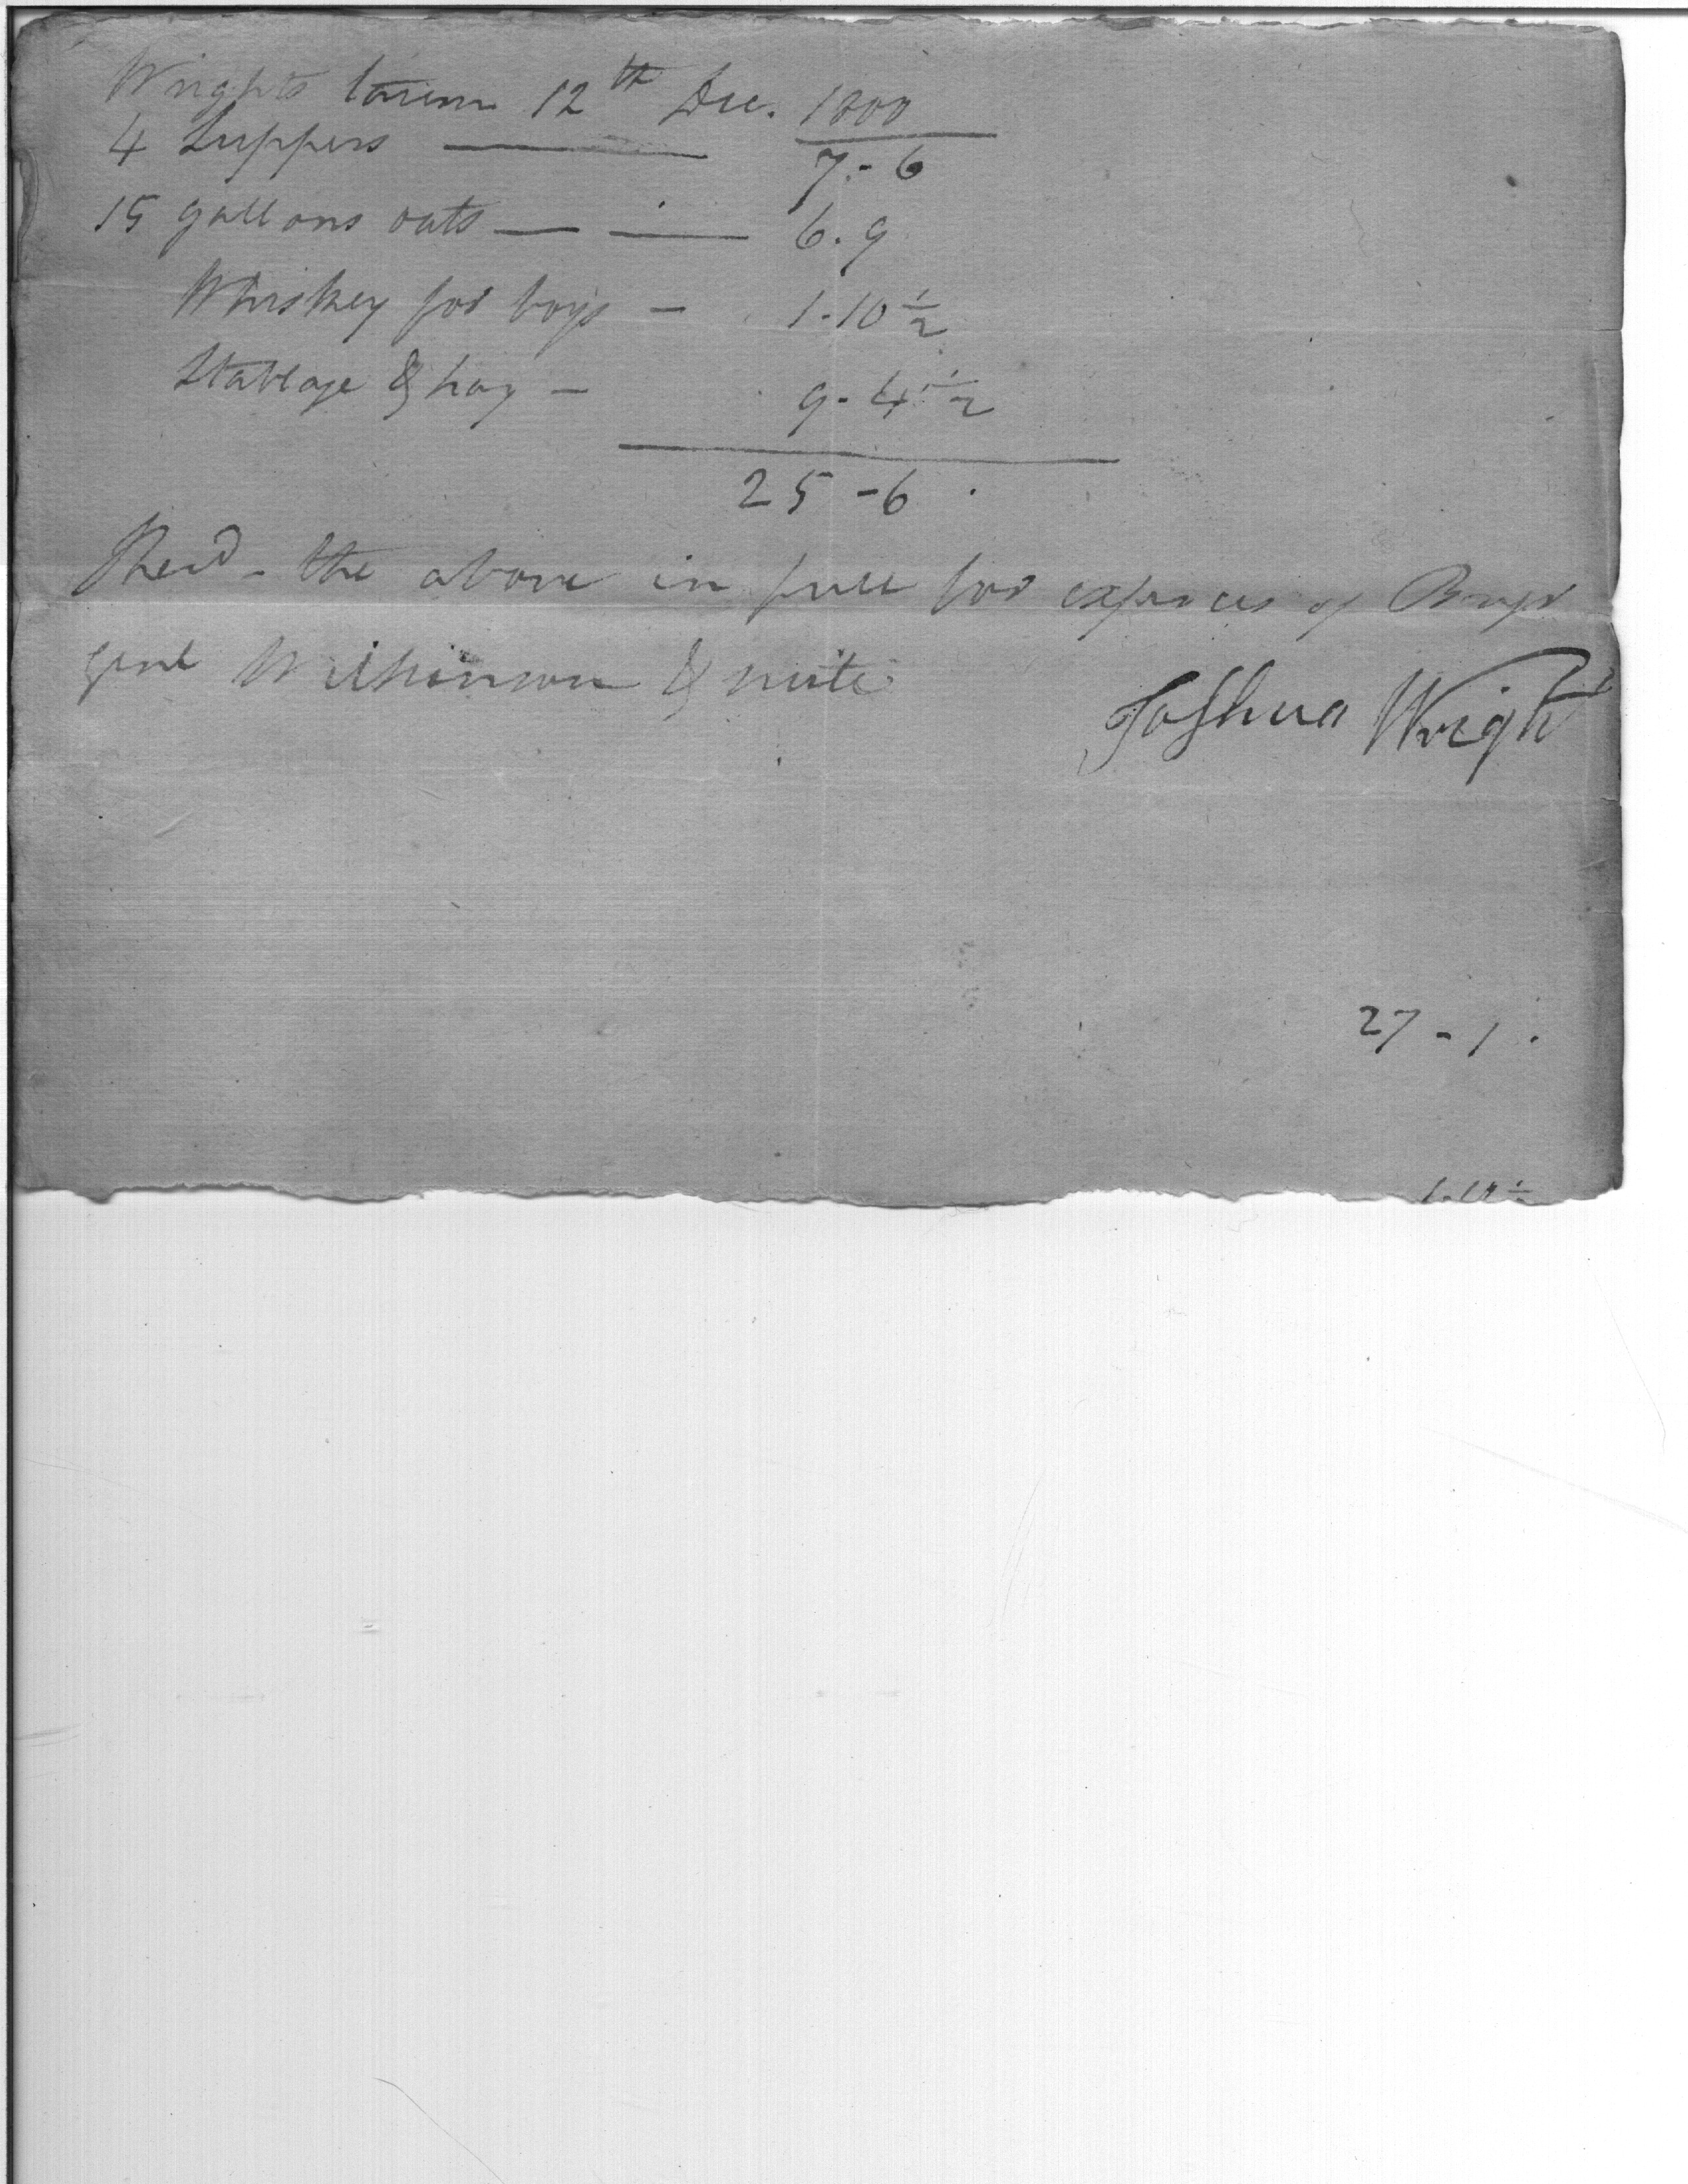 Wrights tavern 12th Dec. 1800
4 Suppers — 7.-6
15 gallons oats — — 6.9
Whiskey for boys - 1.10 1/2
Stablage & hay - 9.4 1/2
25-6.
Recd. the above in full for expences of Brigr
Genl Wilkinson & suite
Joshua Wright
27-1.